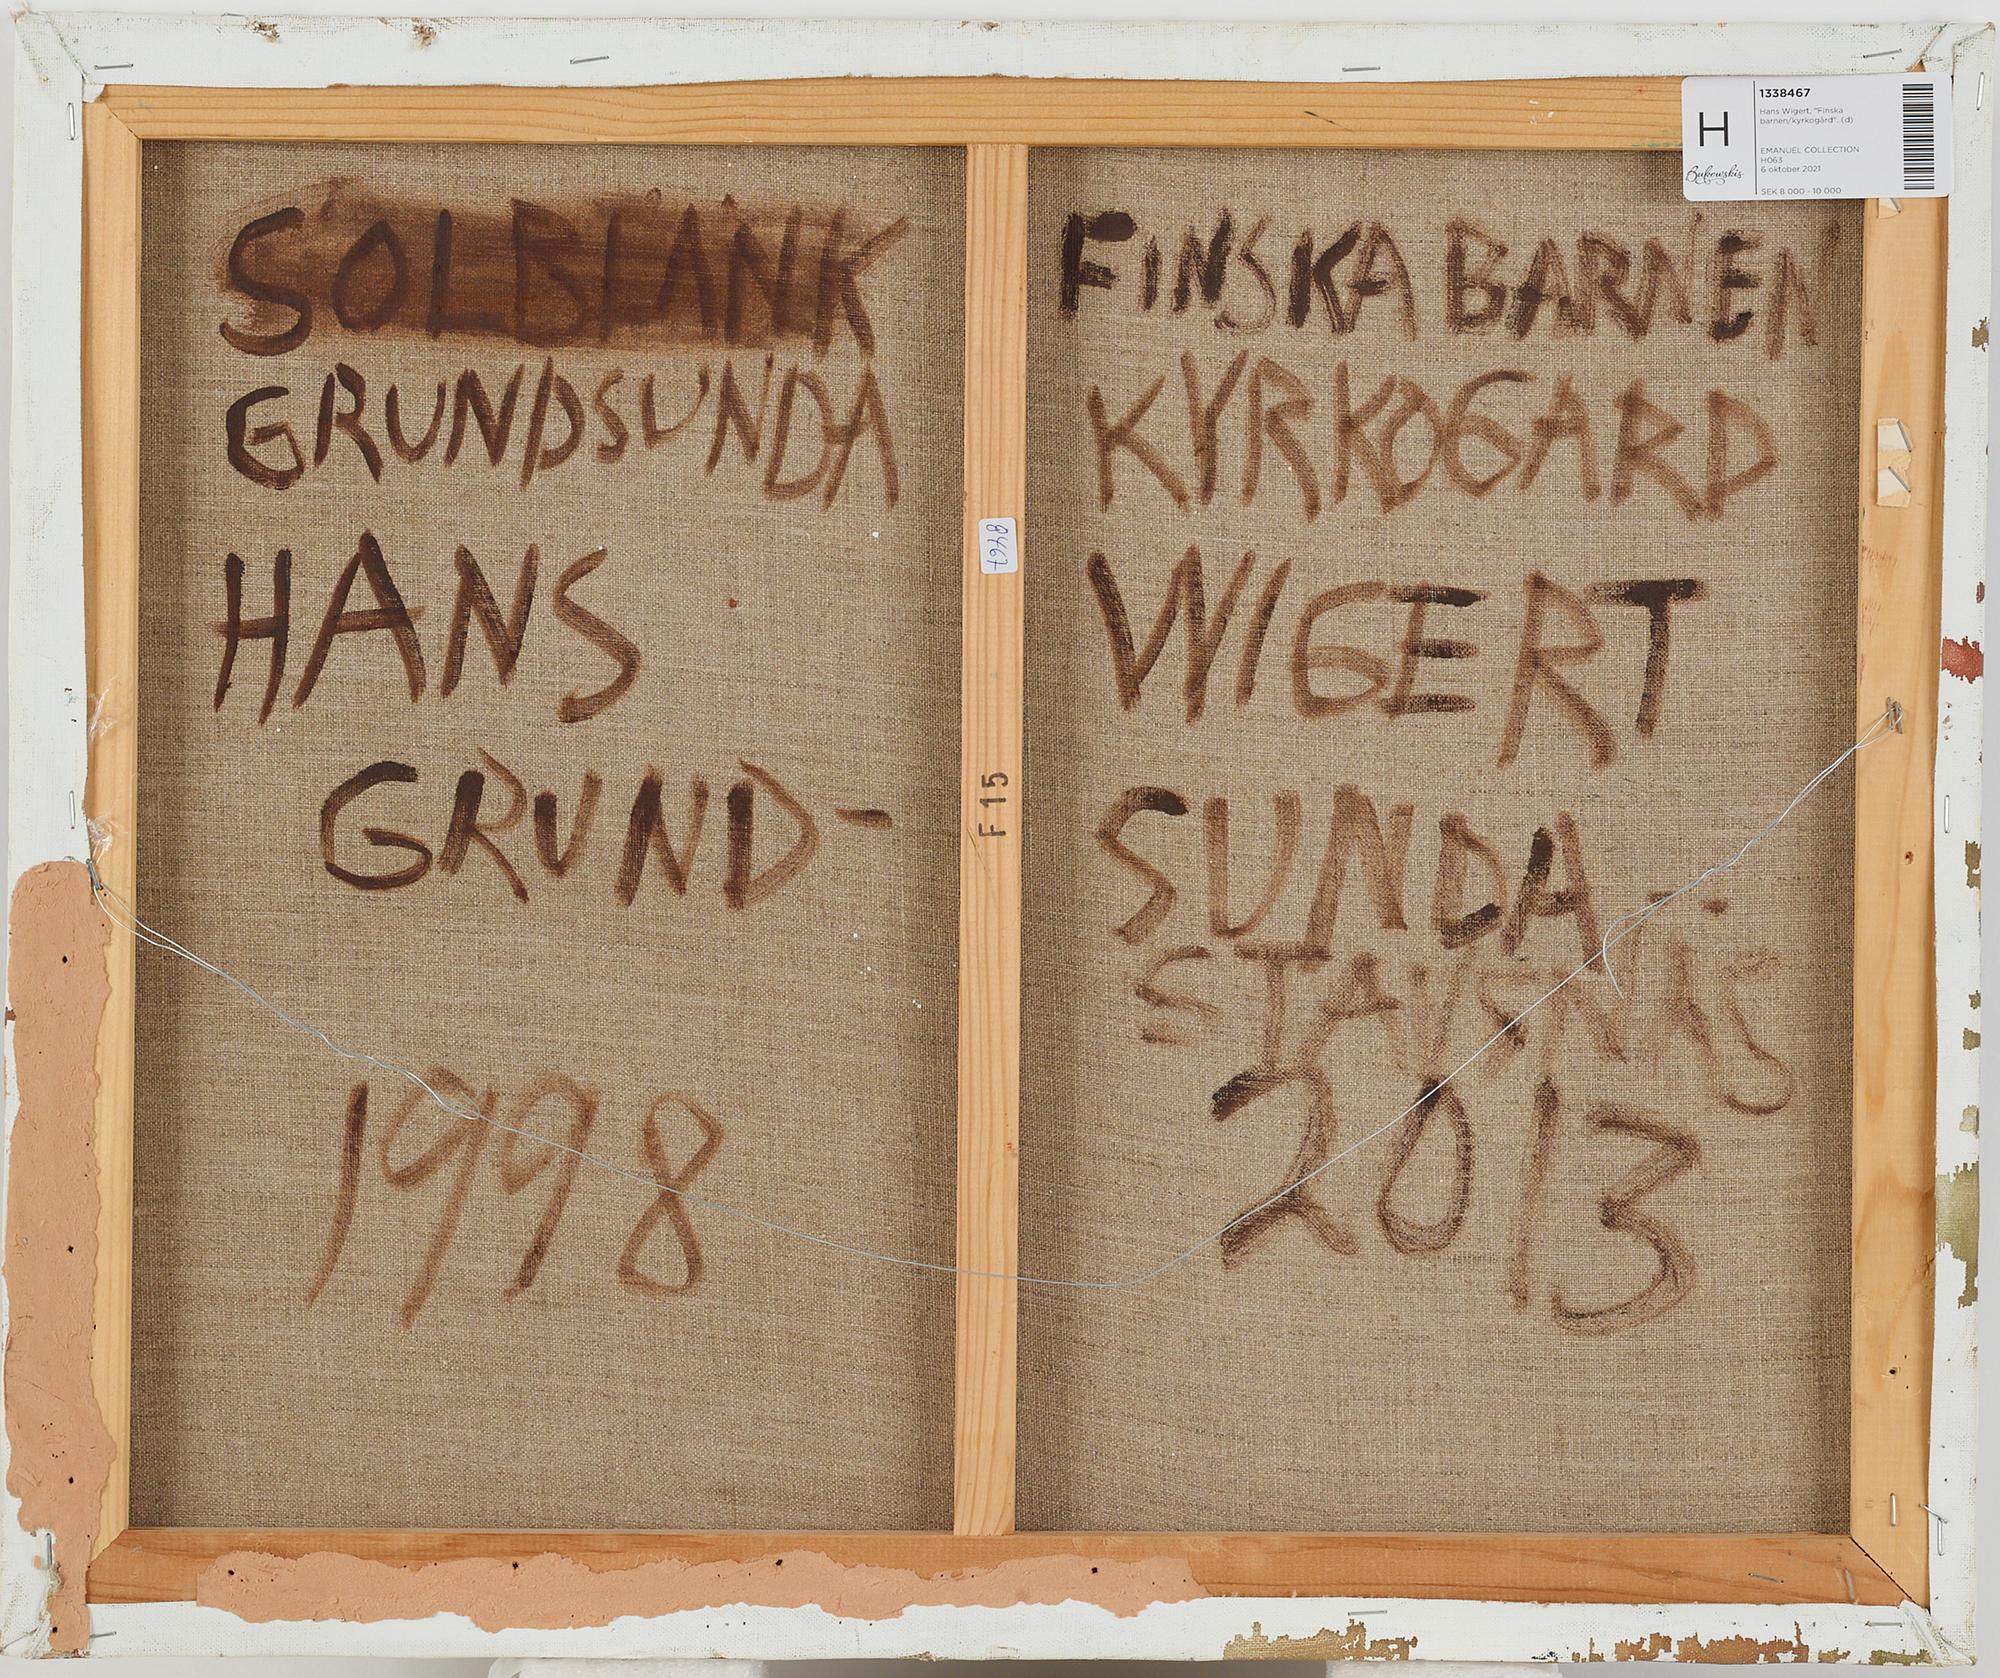 SOLBLANK
GRUNDSUNDA
HANS
GRUND-
1998
FINSKA BARNEN
KYRKOGARD
WIGERT
SUNDA-
2013
F 15
8467
H
Bukowskis
1338467
Hans Wigert, "Finska
barnen/kyrkogård". (d)
EMANUEL COLLECTION
H063
6 oktober 2021
SEK 8 000 - 10 000